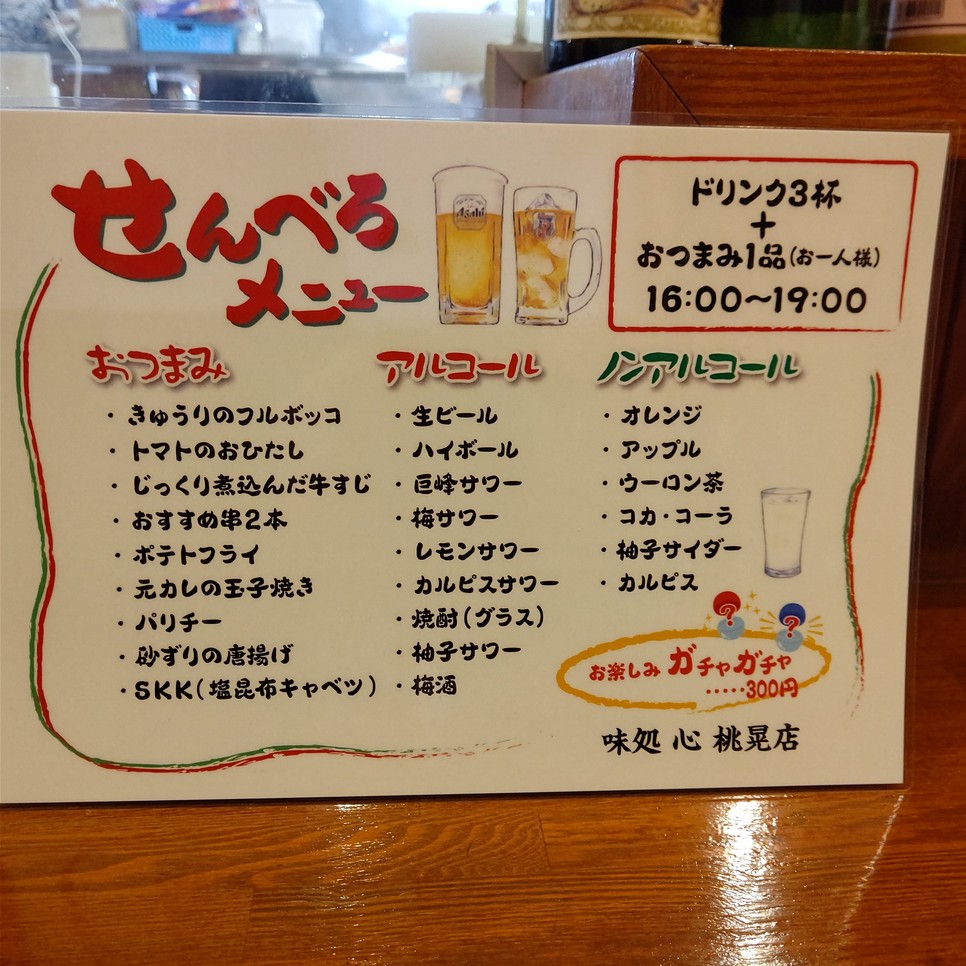 せんべろ
メニュー
Asahi
ドリンク3杯
+
おつまみ1品(お一人様)
16:00～19:00
おつまみ
・きゅうりのフルボッコ
・トマトのおひたし
・じっくり煮込んだ牛すじ
・おすすめ串2本
・ポテトフライ
・元カレの玉子焼き
・パリチー
・砂ずりの唐揚げ
・SKK(塩昆布キャベツ)
アルコール
・生ビール
・ハイボール
・巨峰サワー
・梅サワー
・レモンサワー
・カルピスサワー
・焼酎(グラス)
・柚子サワー
・梅酒
ノンアルコール
・オレンジ
・アップル
・ウーロン茶
・コカ・コーラ
・柚子サイダー
・カルピス
? ?
お楽しみ ガチャガチャ
・・・・・300円
味処 心 桃晃店